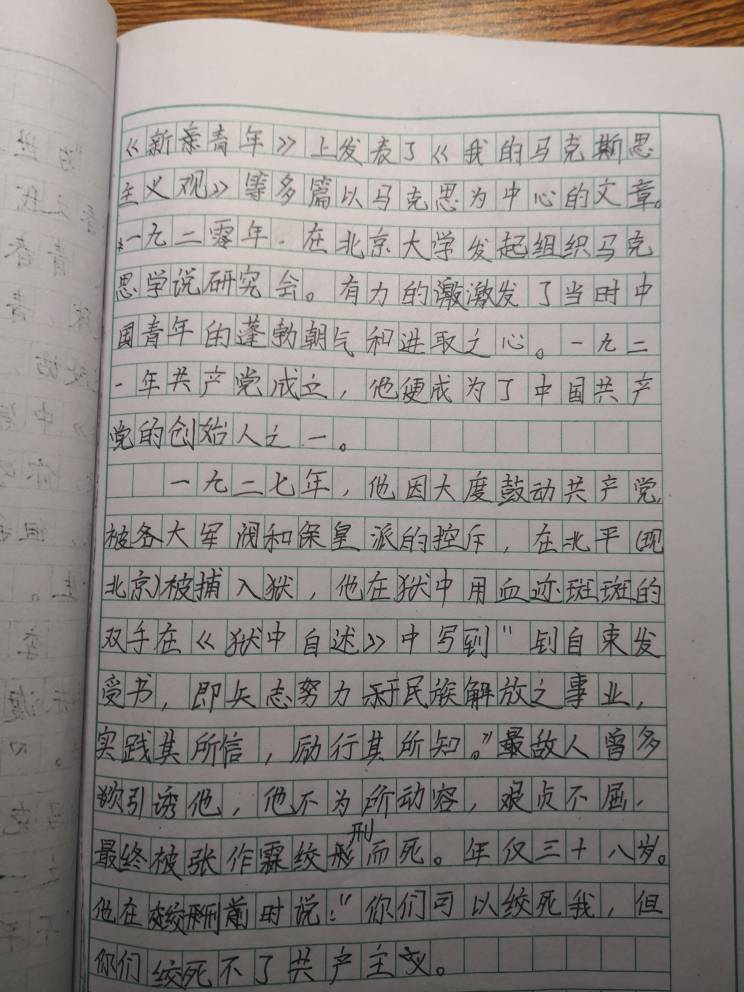 《新青年》上发表了《我的马克斯思
主义观》等多篇以马克思为中心的文章。
一九二零年.在北京大学发起组织马克
思学说研究会。有力的激发了当时中
国青年的蓬勃朝气和进取之心。一九二
一年共产党成立，他便成为了中国共产
党的创始人之一。
一九二七年，他因大度鼓动共产党，
被各大军阀和保皇派的控斥，在北平(现
北京)被捕入狱，他在狱中用血迹斑斑的
双手在《狱中自述》中写到"钊自束发
受书，即矢志努力于民族解放之事业，
实践其所信，励行其所知。"敌人曾多
次引诱他，他不为所动容，艰贞不屈，
最终被张作霖绞刑而死。年仅三十八岁。
他在绞刑前时说："你们可以绞死我，但
你们绞死不了共产主义。